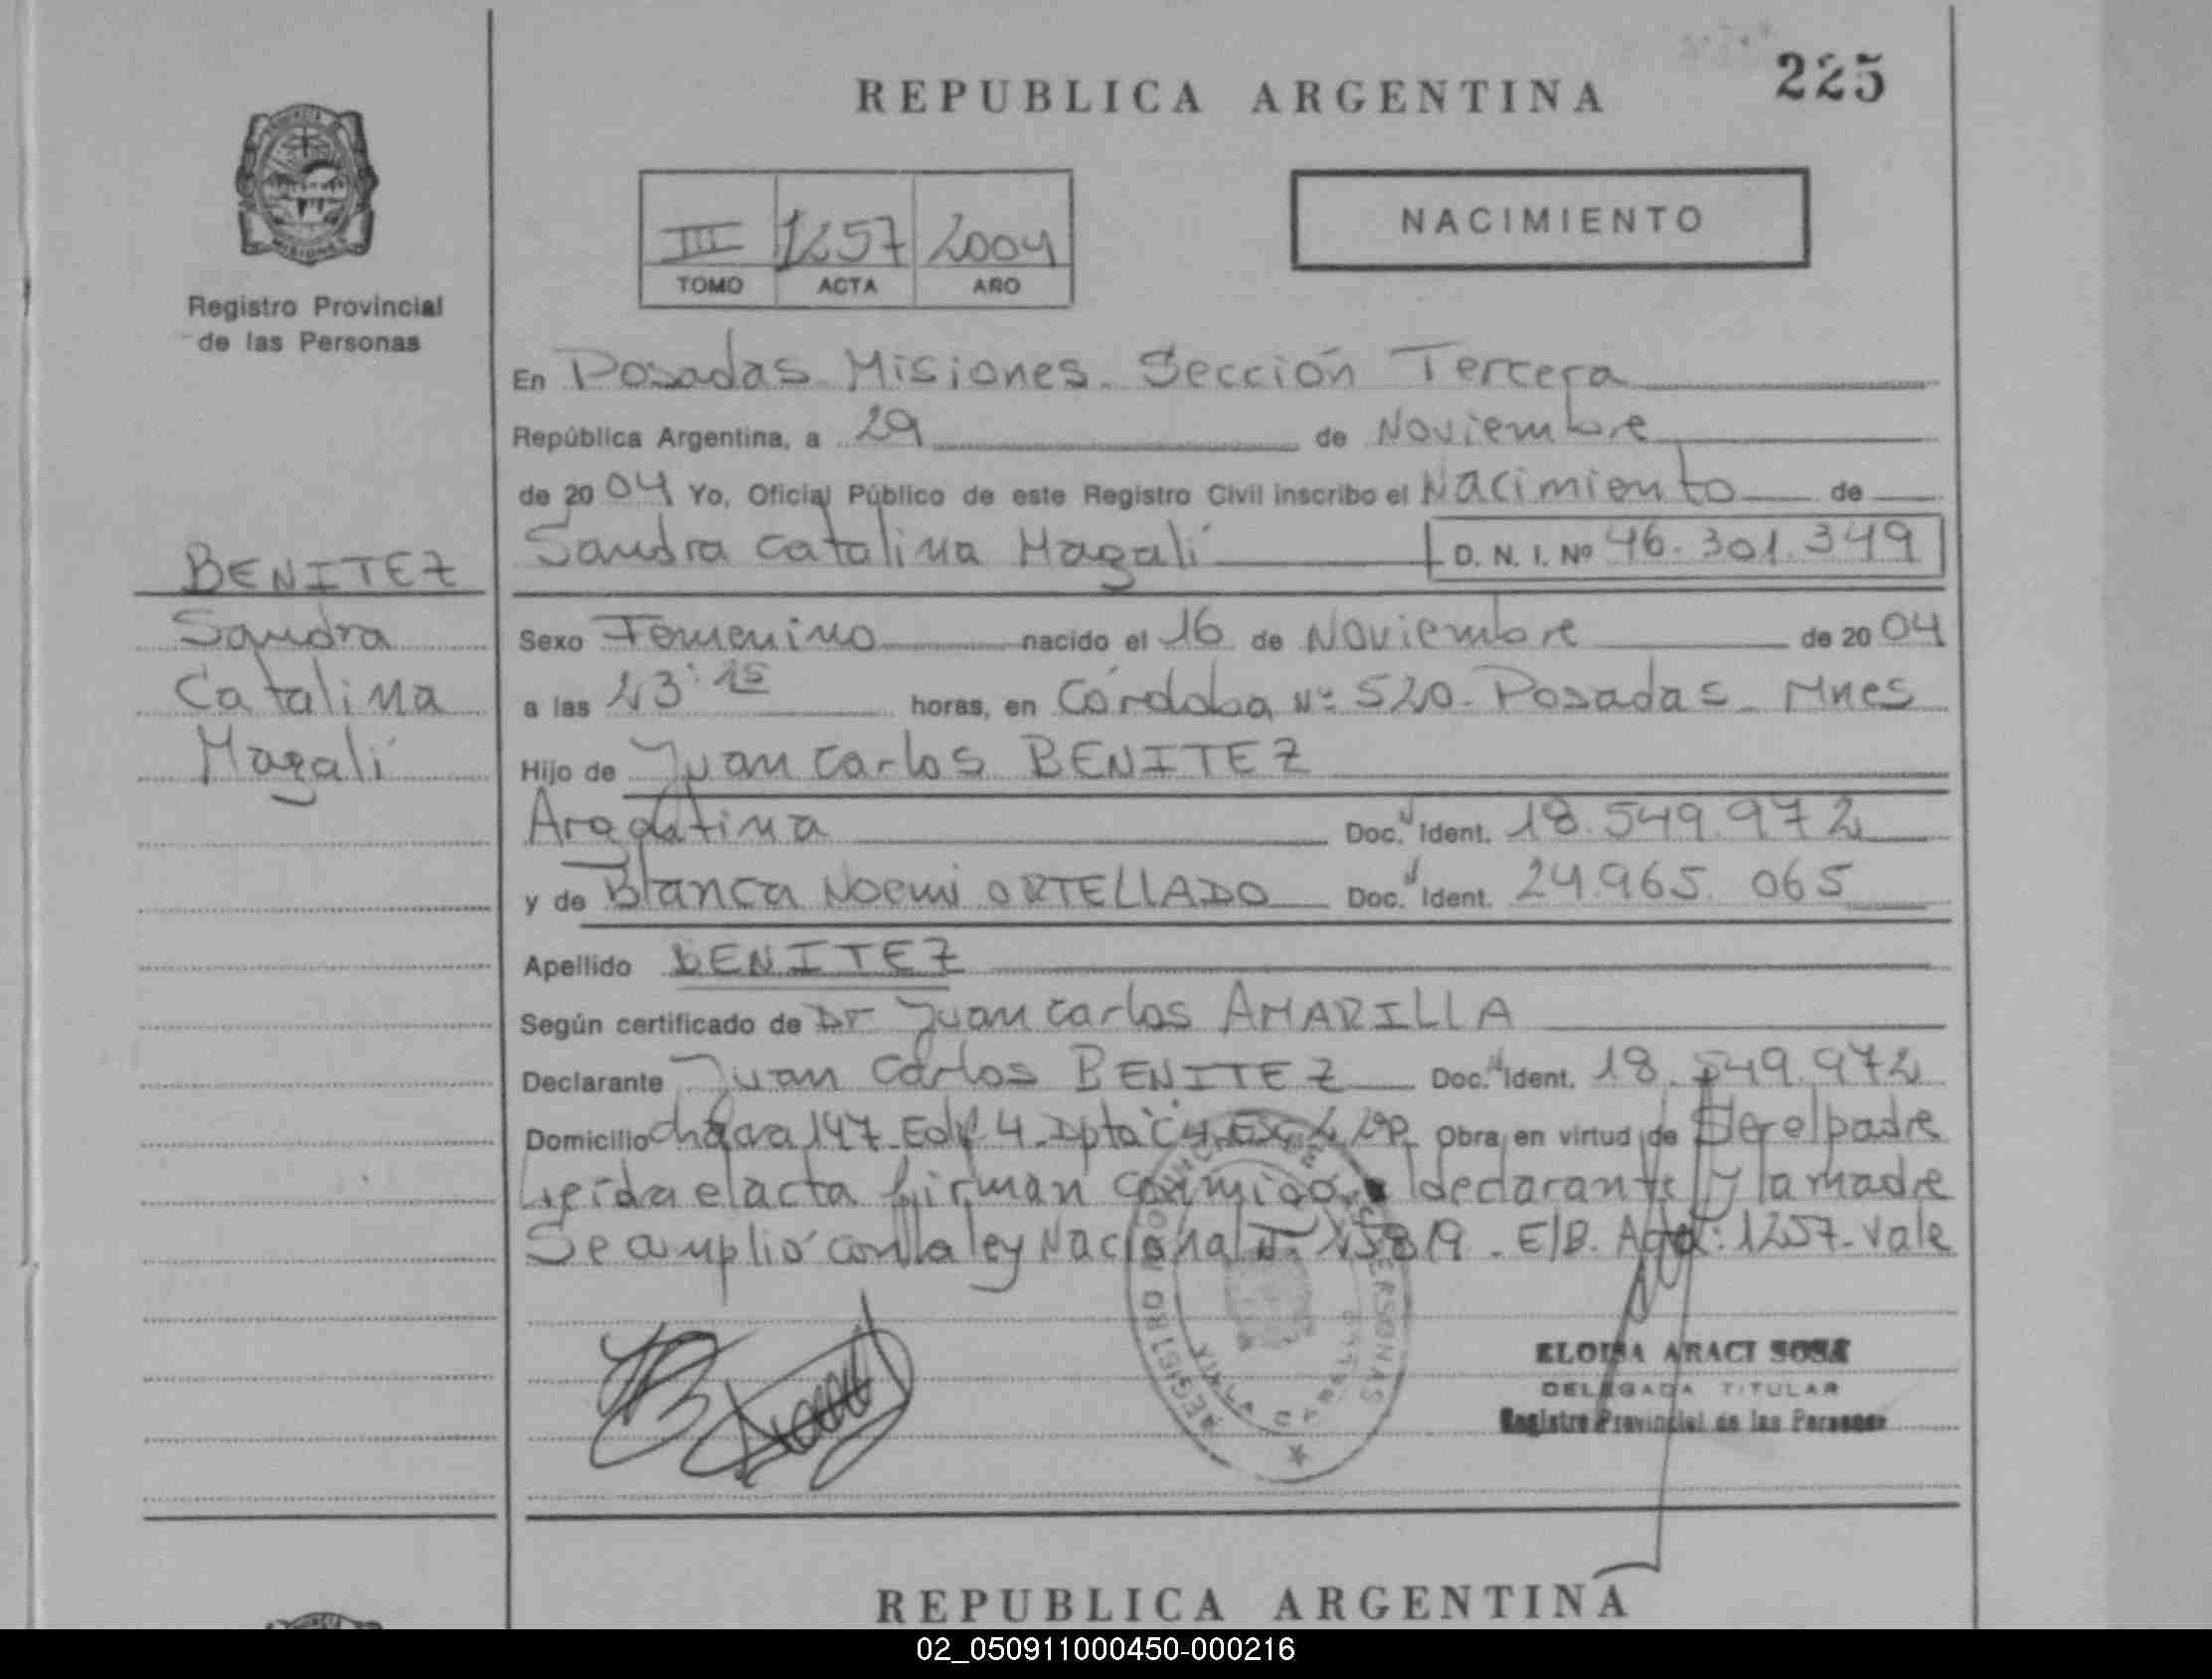 225
REPUBLICA ARGENTINA
III 1257 2004
TOMO ACTA AÑO
NACIMIENTO
Registro Provincial
de las Personas
En Posadas Misiones. Sección Tercera
República Argentina, a 29 de Noviembre
de 2004 Yo, Oficial Público de este Registro Civil inscribo el Nacimiento de
Sandra Catalina Magalí D. N. I. Nº 46.301.349
BENITEZ
Sandra
Catalina
Magalí
Sexo Femenino nacido el 16 de Noviembre de 2004
a las 23:15 horas, en Córdoba Nº 520. Posadas - Mnes
Hijo de Juan Carlos BENITEZ
Argentina Doc. Ident. 18.549.972
y de Blanca Noemi ORTELLADO Doc. Ident. 24.965.065
Apellido BENITEZ
Según certificado de Dr Juan Carlos AMARILLA
Declarante Juan Carlos BENITEZ Doc. Ident. 18.549.972
Domicilio chacra 147 Edif 4 Dpto "C" Obra en virtud de Ser el padre
Leída el acta firman conmigo declarante y la madre
Se amplió con la ley Nacional E/B. Acta: 1257. Vale
REGISTRO PERSONAS
ELOISA ARACI SOSA
DELEGADA TITULAR
Registro Provincial de las Personas
REPUBLICA ARGENTINA
02_050911000450-000216